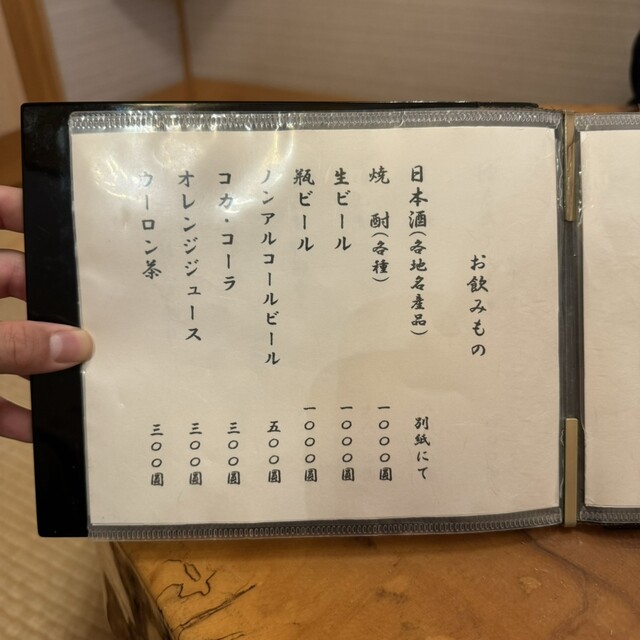 お飲みもの
日本酒(各地名産品) 別紙にて
焼 酎(各種) 一〇〇〇圓
生ビール 一〇〇〇圓
瓶ビール 一〇〇〇圓
ノンアルコールビール 五〇〇圓
コカ・コーラ 三〇〇圓
オレンジジュース 三〇〇圓
ウーロン茶 三〇〇圓